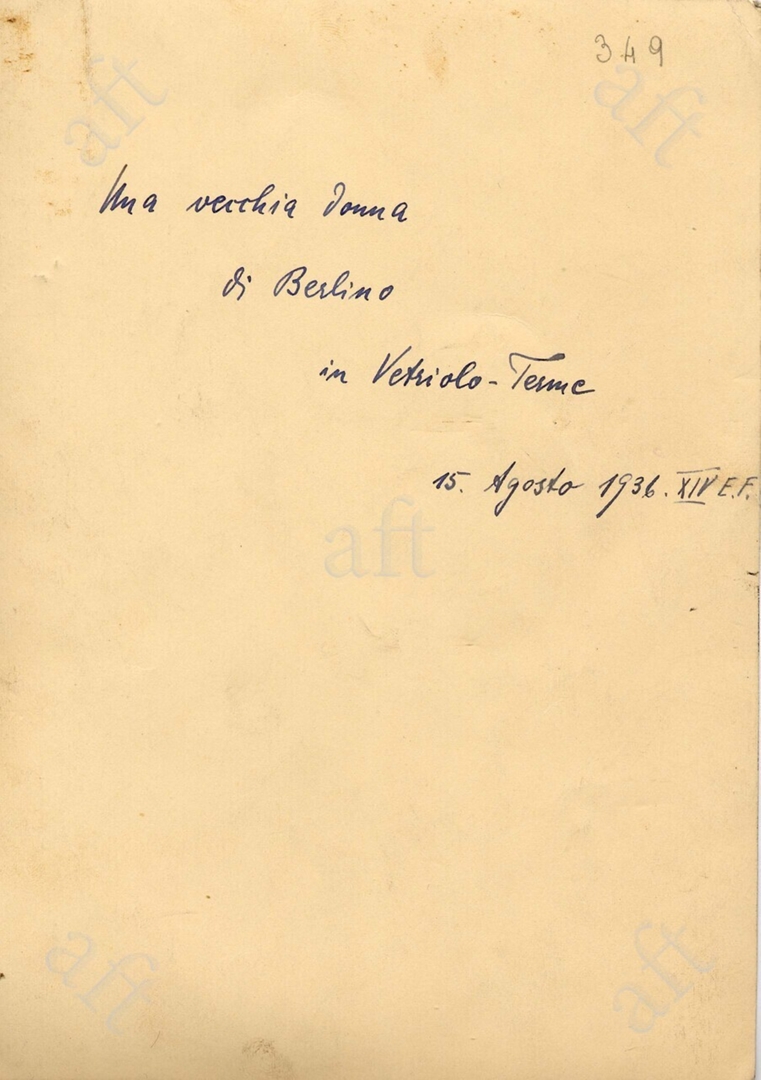 349
Una vecchia donna
di Berlino
in Vetriolo-Terme
15. Agosto 1936. XIV E.F.
aft
aft
aft
aft
aft